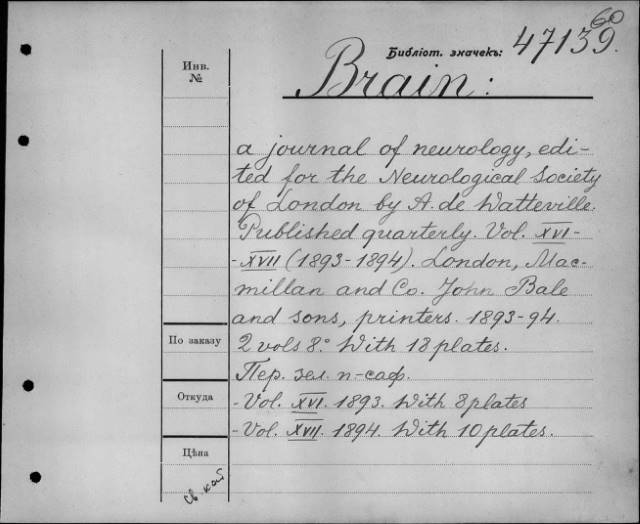 60
Библіот. значекъ: 47139.
Инв.
№
Brain:
a journal of neurology, edi-
ted for the Neurological Society
of London by A. de Watteville.
Published quarterly. Vol. XVI-
-XVII (1893-1894). London, Mac-
millan and Co. John Bale
and sons, printers. 1893-94.
По заказу
2 vols 8º. With 18 plates.
Пер. зел. п-саф.
Откуда
-Vol. XVI. 1893. With 8 plates
-Vol. XVII. 1894. With 10 plates.
Цѣна
св. кат